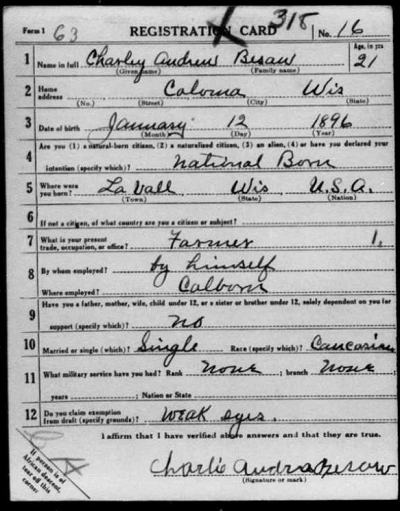 Form 1 63 REGISTRATION CARD 318 No. 16
1 Name in full Charley Andrew Besaw Age, in yrs 21
(Given name) (Family name)
2 Home address Coloma Wis
(No.) (Street) (City) (State)
3 Date of birth January 12 1896
(Month) (Day) (Year)
4 Are you (1) a natural-born citizen, (2) a naturalized citizen, (3) an alien, (4) or have you declared your
intention (specify which)? National Born
5 Where were you born? La Vall Wis U.S.A.
(Town) (State) (Nation)
6 If not a citizen, of what country are you a citizen or subject?
7 What is your present trade, occupation, or office? Farmer 1
8 By whom employed? by himself
Where employed? Colborn
9 Have you a father, mother, wife, child under 12, or a sister or brother under 12, solely dependent on you for
support (specify which)? no
10 Married or single (which)? Single Race (specify which)? Caucasian
11 What military service have you had? Rank None ; branch None ;
years ; Nation or State
12 Do you claim exemption from draft (specify grounds)? Weak eyes.
I affirm that I have verified above answers and that they are true.
Charlie Andra Besaw
(Signature or mark)
If person is of
African descent,
tear off this
corner.